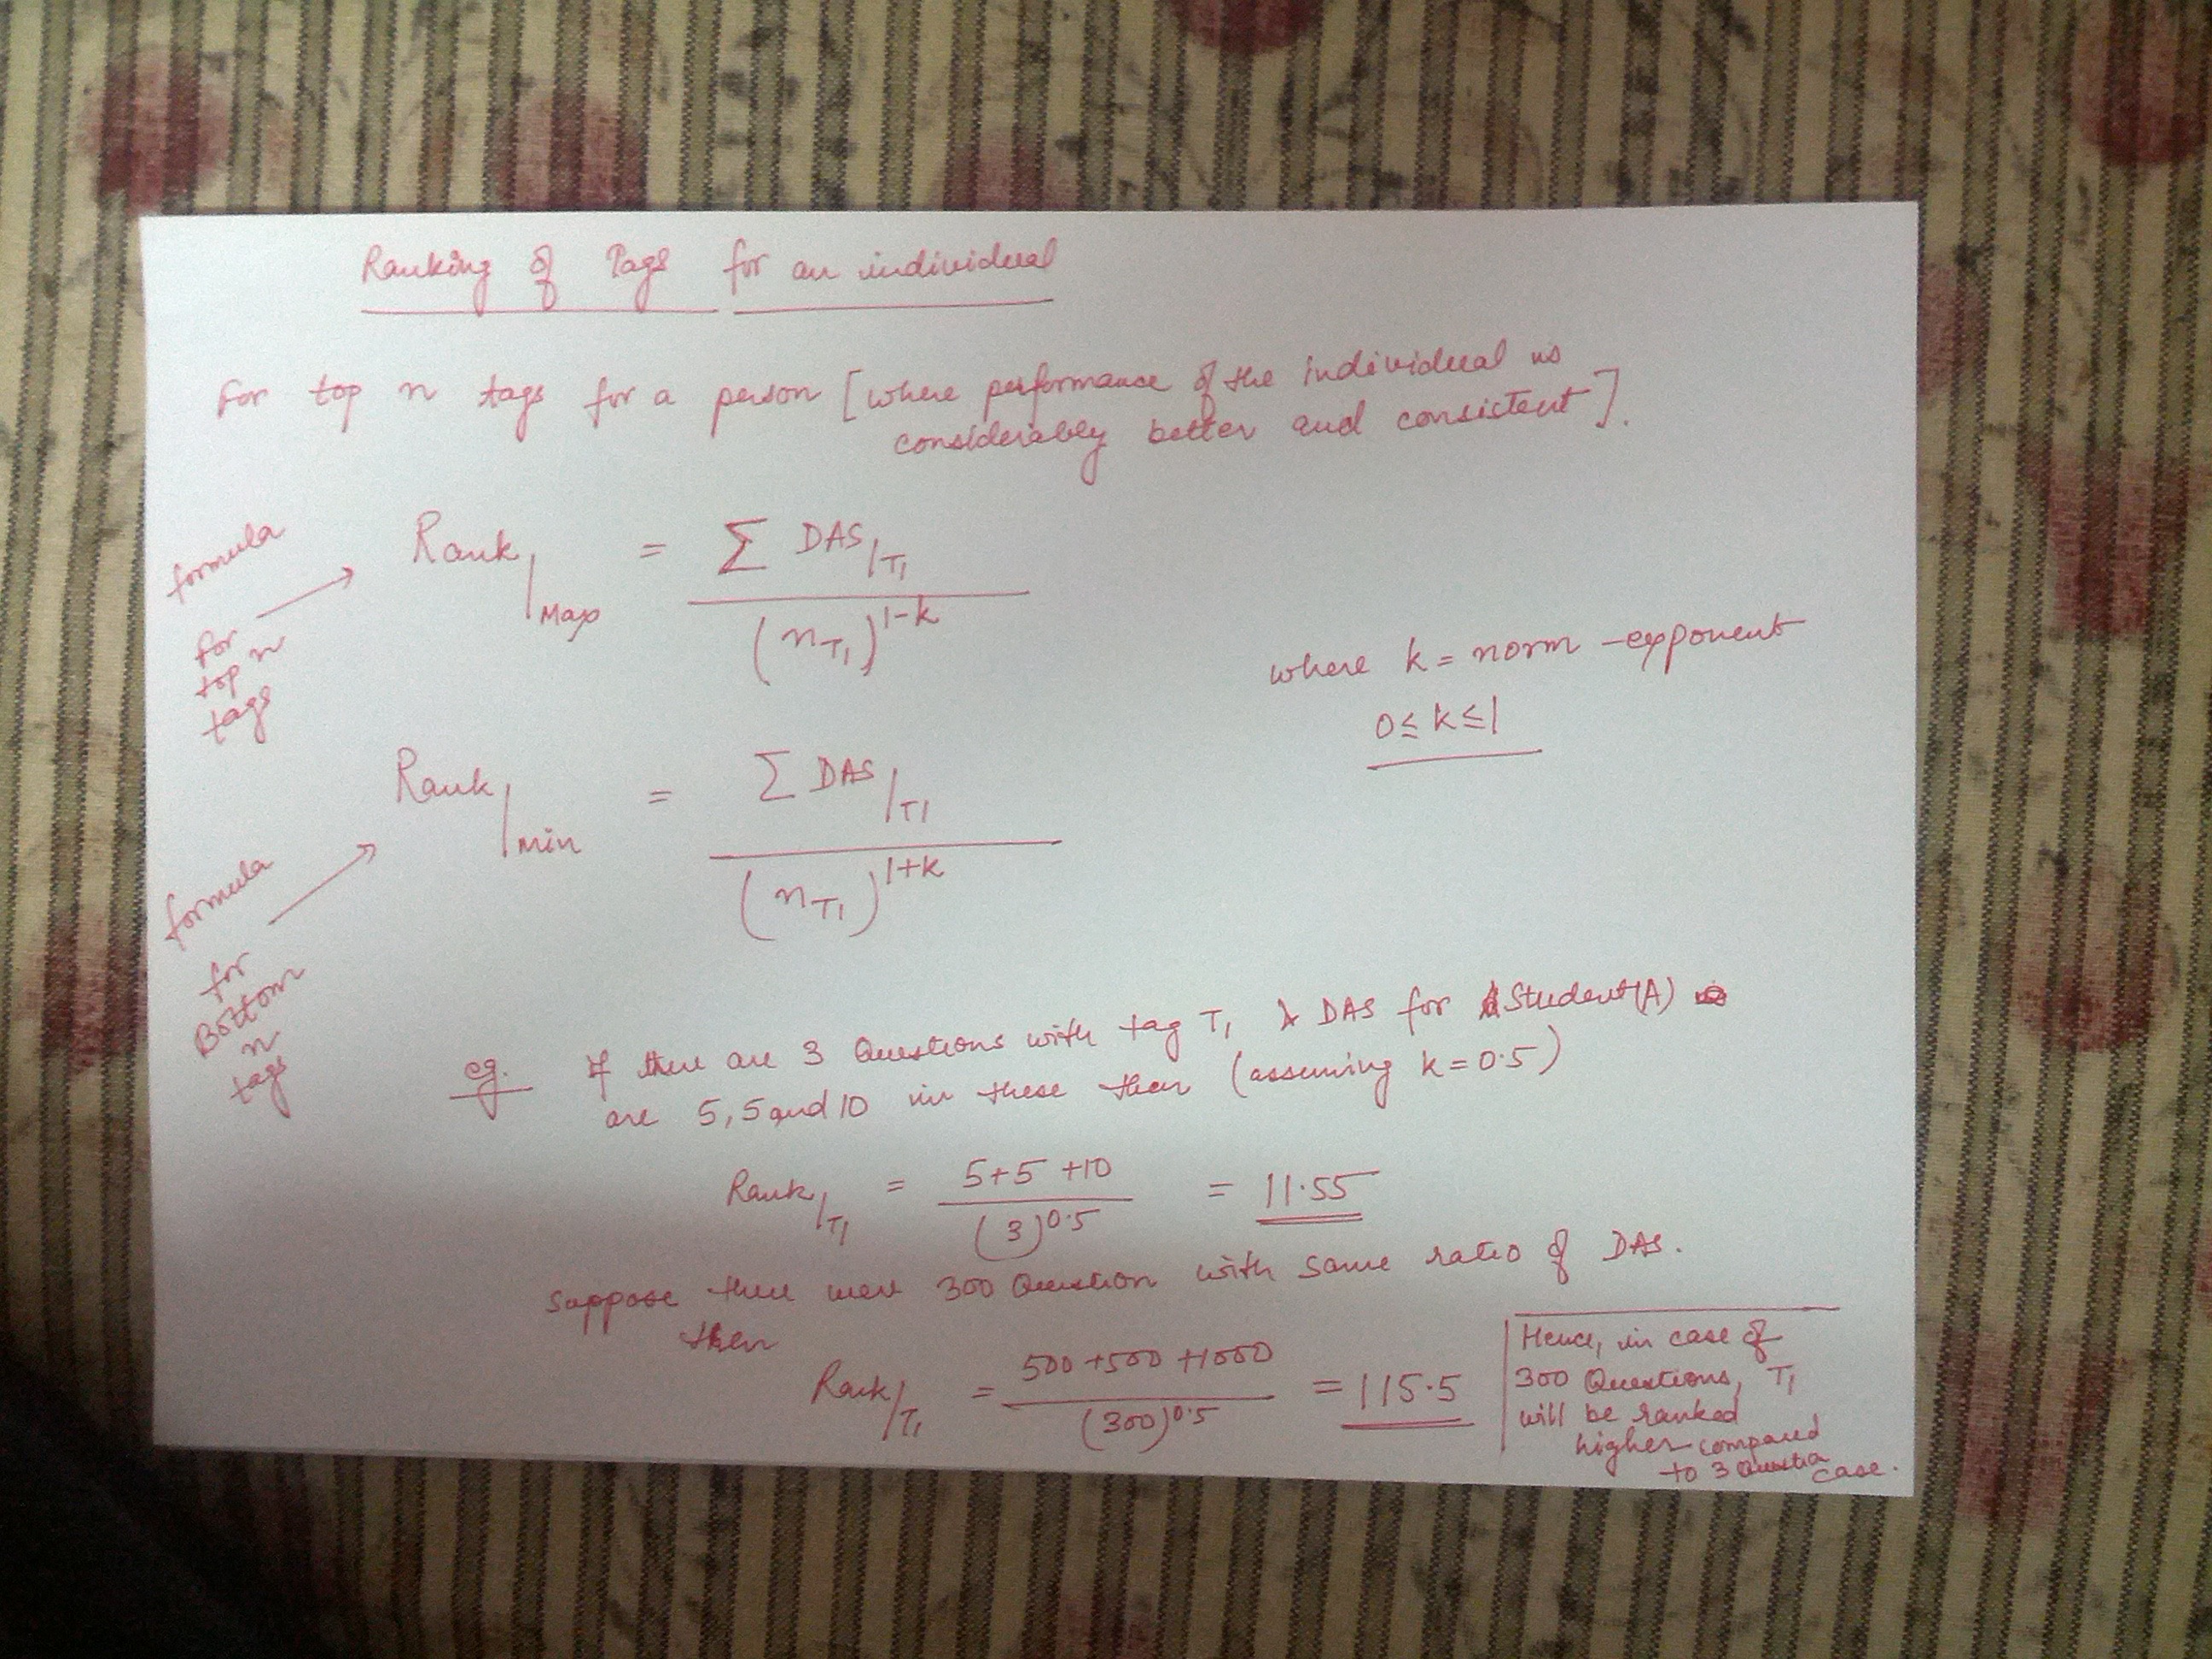 Ranking of Tags for an individual
For top n tags for a person [where performance of the individual is
considerably better and consistent].
formula
for
top n
tags
Rank|Max = Σ DAS|T1 / (nT1)^1-k
where k = norm-exponent
0 ≤ k ≤ 1
Rank|Min = Σ DAS|T1 / (nT1)^1+k
formula
for
Bottom
n
tags
eg. If there are 3 Questions with tag T1 & DAS for Student(A)
are 5, 5 and 10 in these then (assuming k = 0.5)
Rank|T1 = 5+5+10 / (3)^0.5 = 11.55
Suppose there were 300 Question with same ratio of DAS.
then
Rank|T1 = 500+500+1000 / (300)^0.5 = 115.5
Hence, in case of
300 Questions, T1
will be ranked
higher compared
to 3 Question case.